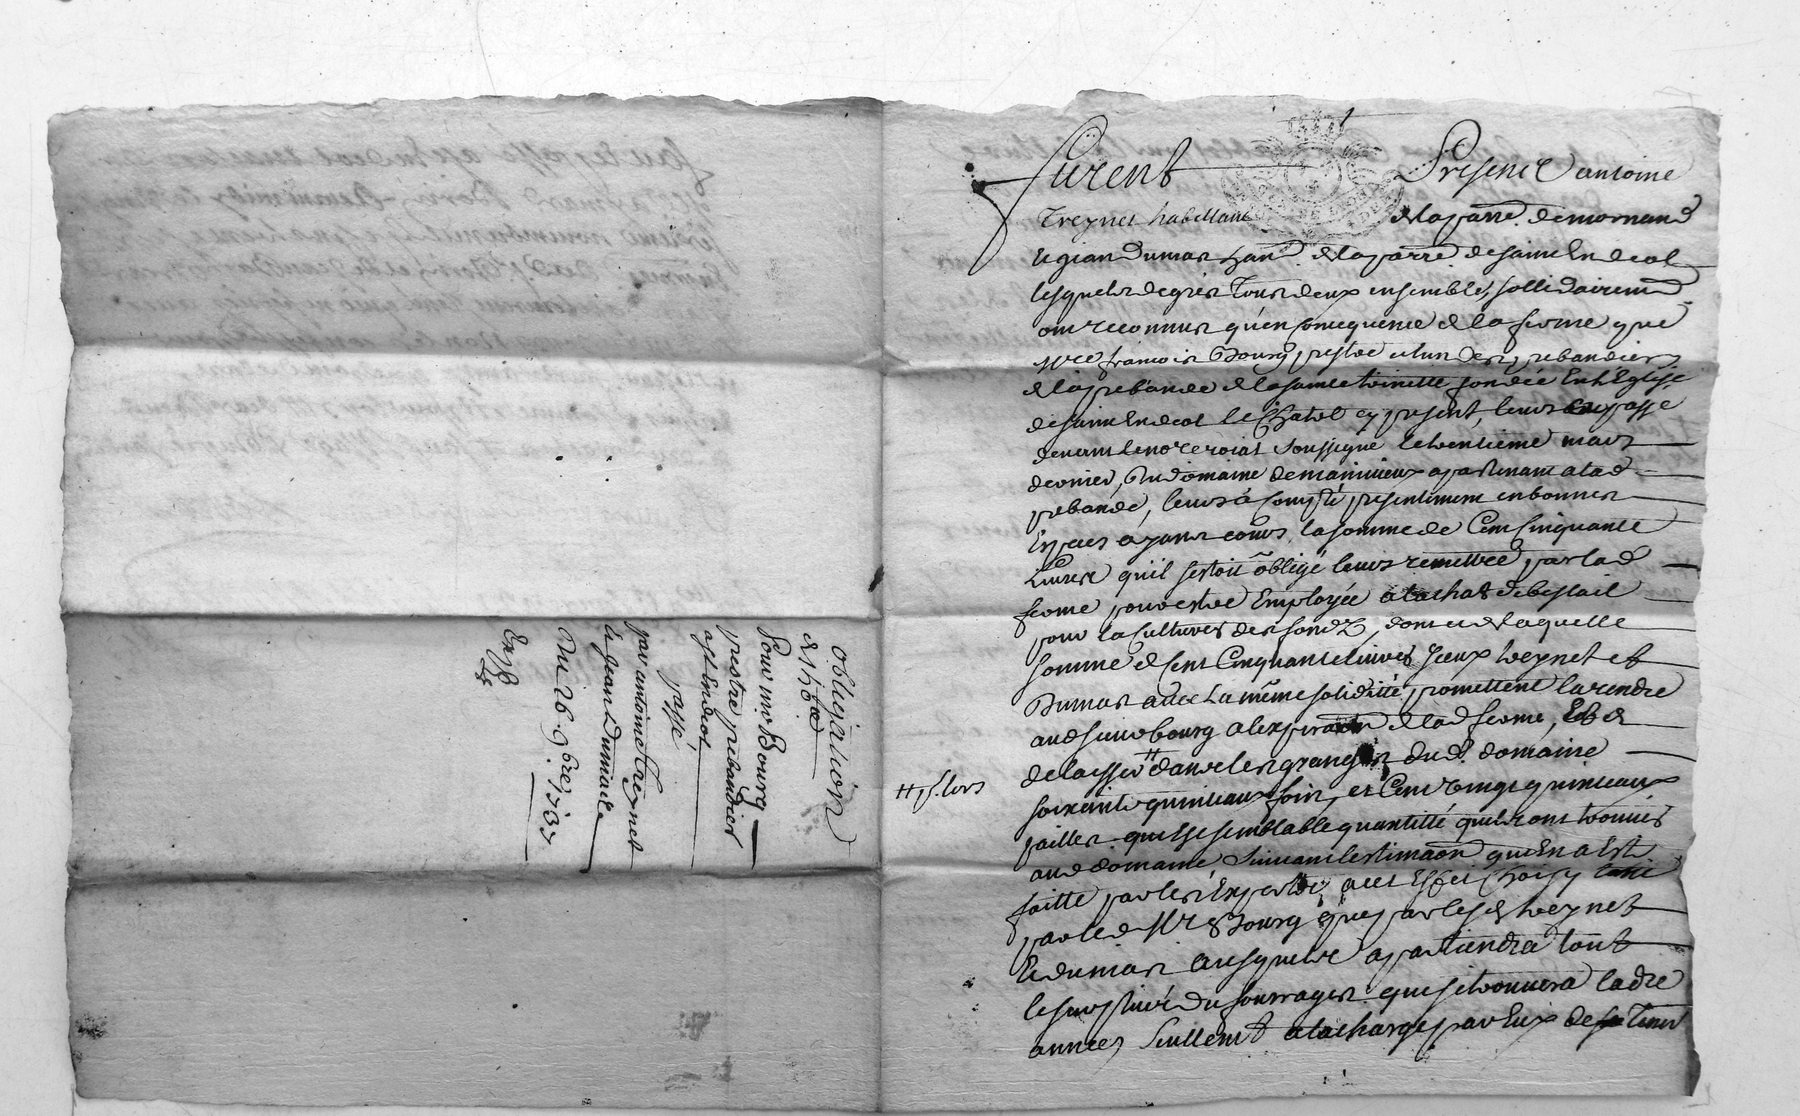 obligation
de 150 ₶
Pour mre Bourg
prestre prebandier
a st Endeol
passé
par antoine treynet
& jean Dumas
Du 26. 9bre 1737
Expé
furent Presens antoine
treynet habittant de la parre. de mornand
et jean Dumas hant. de la parre de saint Endeol
lesquels de gres tous deux ensemble, sollidairement
ont reconnus qu'en consequence de la ferme que
Mre francois Bourg prestre et un des prebandiers
de la prebande de la sainte trinette fondée En l'Eglise
de saint Endeol le Chatel cy present, leurs a passé
devant le nore roial soussigné le trentieme mars
dernier, du domaine de appartenant a lad
prebande, leurs à Compté presentement en bonnes
Especes ayant cours, la somme de Cent Cinquante
Livres qu'il s'estoit obligé leurs remettre par lad
ferme pour estre Employée a l'achat de bestail
pour la Cultures des fondz, dont et de laquelle
somme de Cent Cinquante livres yceux treynet et
Dumas avec La même soliditté promettent la rendre
aud sieur bourg a l'expiraon de lad ferme, Et de
delaisser ⧺ dans les granges dud. domaine
⧺ p.r lors
soixante quinteaux foin, et Cent vingt quinteaux
pailles qui Est semblable quantitté qu'ils ont trouvés
aud domaine suivant l'estimaon qui En a Esté
faitte par les Experts, a cet Effet Choisy tant
par led Mre Bourg que par lesd treynet
Et dumas ausquels appartiendra tout
le surplus du fourrages que se trouvera lad
année, seullemt a la charge par Eux de tenir